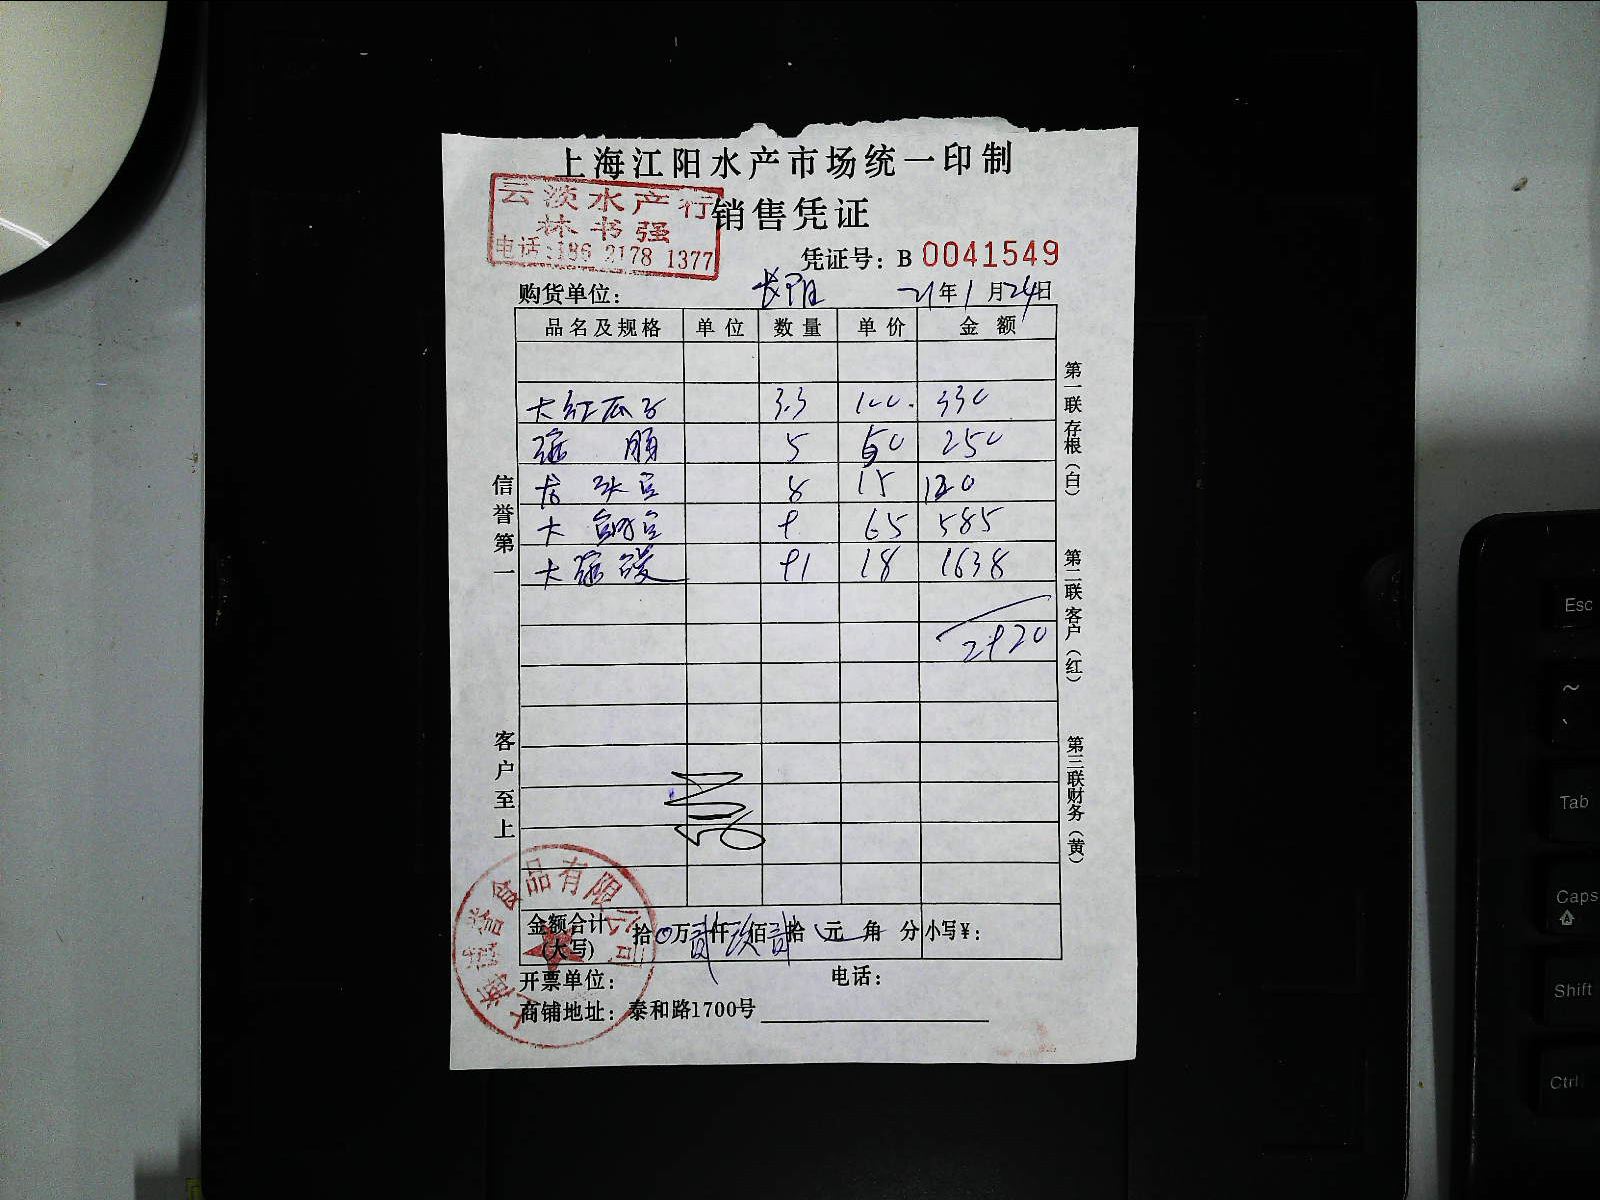 上海江阳水产市场统一印制
云淡水产行
林书强
电话:186 2178 1377
销售凭证
凭证号: B 0041549
购货单位: 长阳 21年1月24日
品名及规格 单位 数量 单价 金额
大红瓜子 3.3 100. 330
5 50 250
8 15 120
大 9 65 585
大 91 18 1638
2920
信誉第一
客户至上
第一联存根(白)
第二联客户(红)
第三联财务(黄)
金额合计(大写) 拾0万贰仟玖佰贰拾元角分 小写¥:
开票单位: 电话:
商铺地址: 泰和路1700号
食品有限公司
Esc
~
`
Tab
Caps
Shift
Ctrl